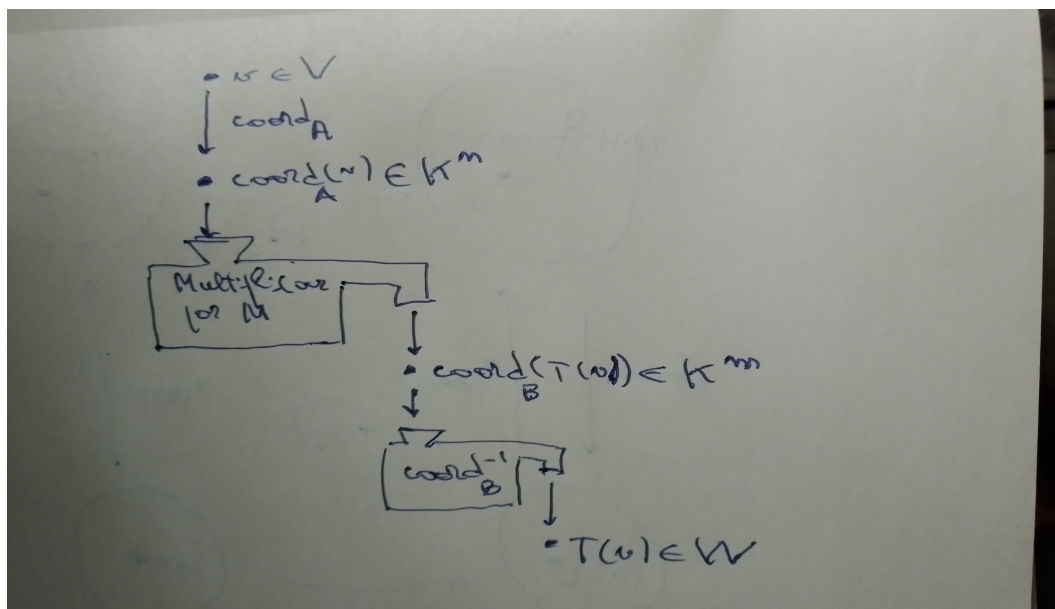 v ∈ V
coord_A
coord_A(v) ∈ K^n
Multiplicar
por M
coord_B(T(v)) ∈ K^m
coord_B^-1
T(v) ∈ W